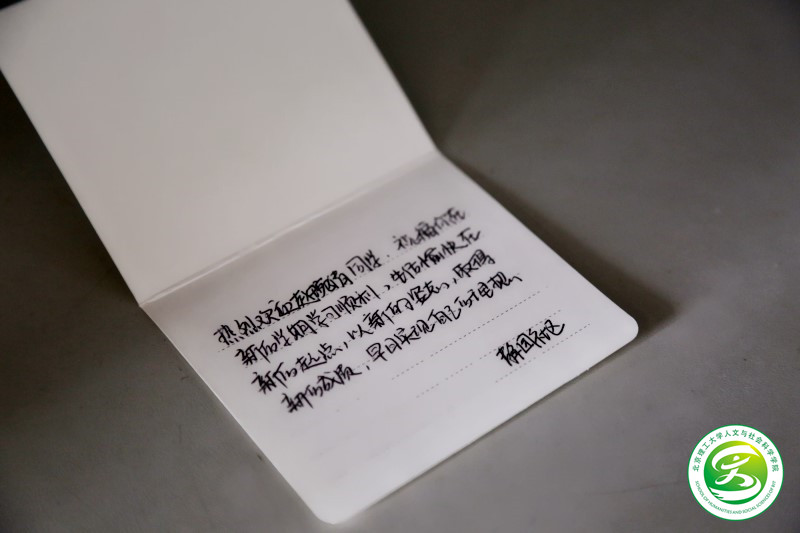 热烈欢迎同学，祝福你在
新的学期学习顺利，生活愉快。在
新的起点，以新的姿态，取得
新的成绩，早日实现自己的理想。
静园社区
北京理工大学人文与社会科学学院
SCHOOL OF HUMANITIES AND SOCIAL SCIENCES OF BIT